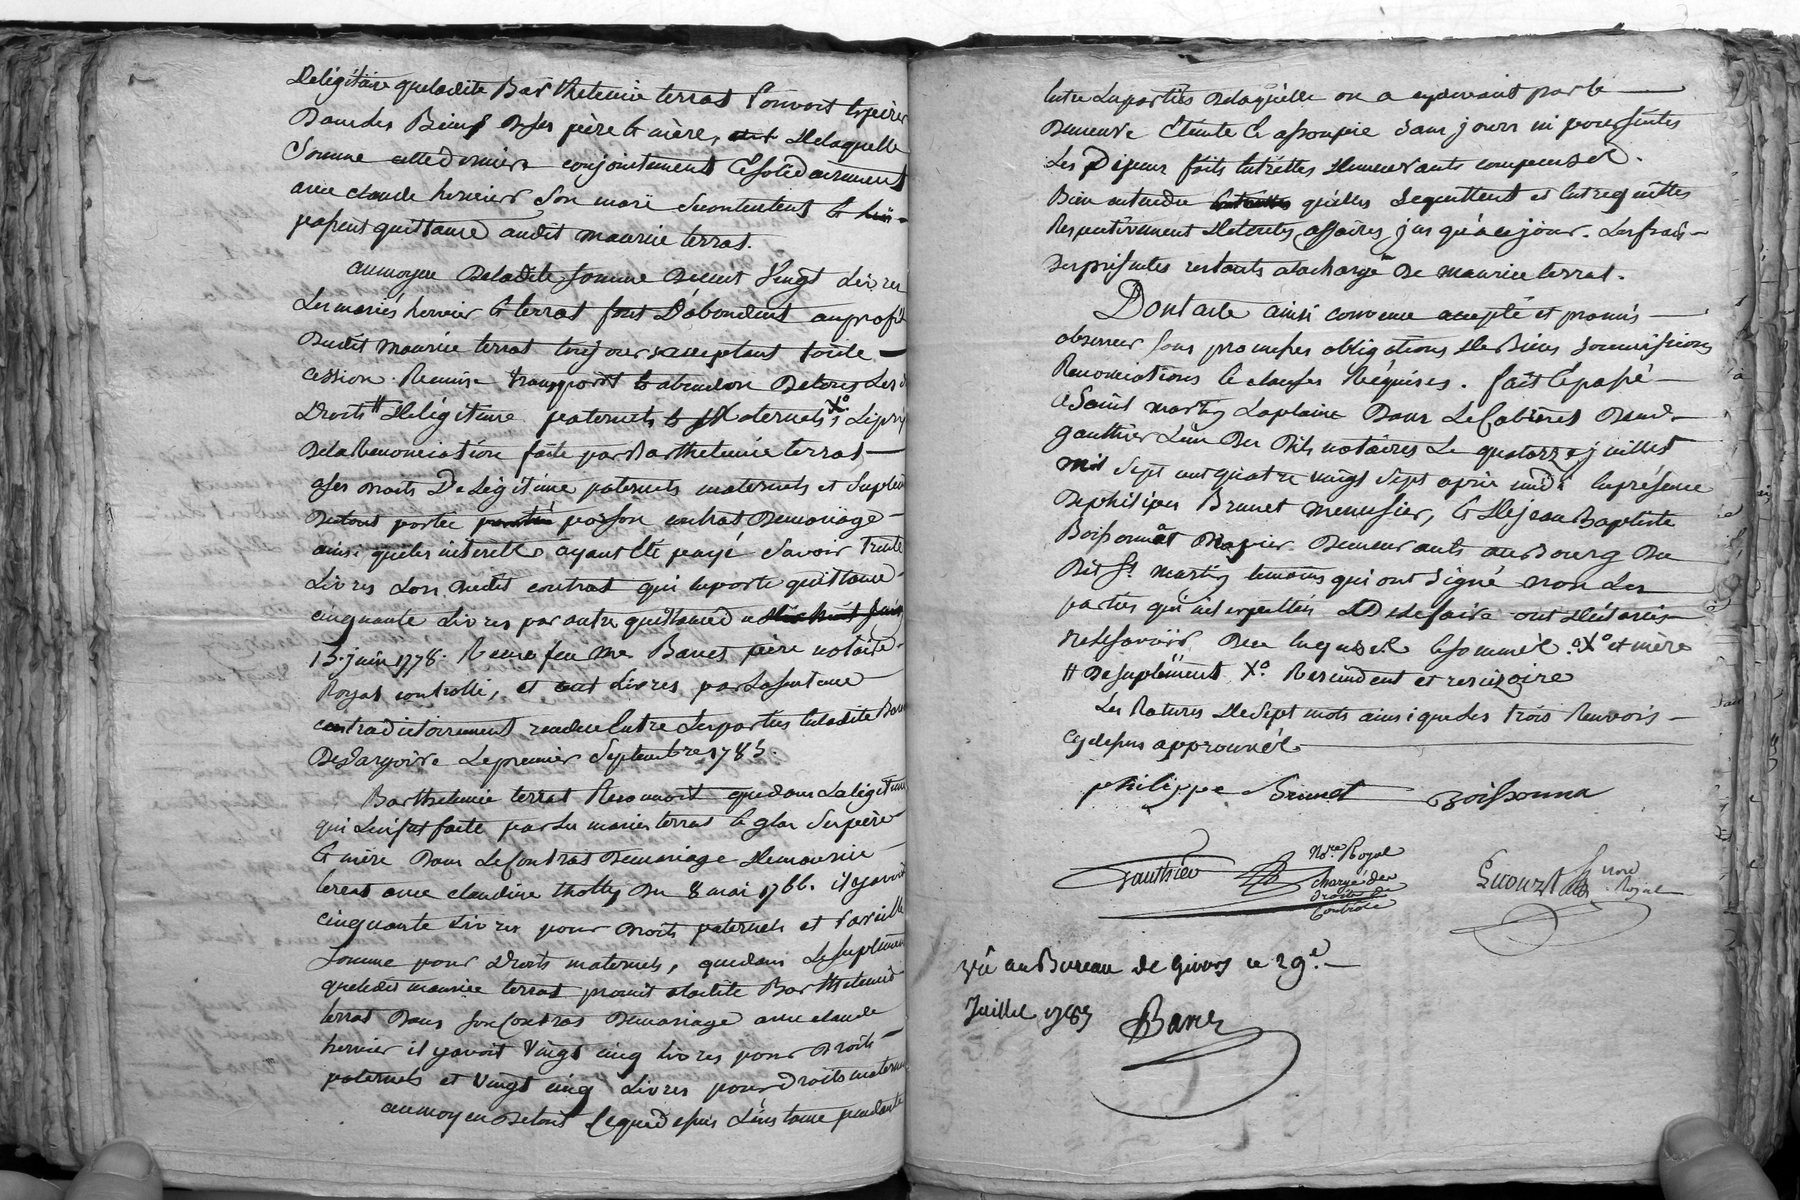 De légitime que ladite Barthelemie terras Pouvoit espérer
Dans les Biens De ses père et mère, De laquelle
Somme cette derniere conjointement et solidairement
avec claude hervier Son mari Se contentent et
passent quittance audit maurice terras.
au moyen De ladite somme De cent vingt Livres
Les mariés hervier et terras font D'abondant au profit
Dudit maurice terras toujours acceptant toute
cession Remise transport et abandon De tous Les
Droits # De légitime paternels et Maternels X°
De la Renonciation faite par Barthelemie terras
a ses droits De Légitime paternels maternels et Suplement
Du tout portée par son contrat De mariage
ainsi que les interets ayant été payé Savoir trente
Livres Lors dudit contrat qui en porte quittance
cinquante Livres par autre quittance
15 juin 1778. Recue feu Me Bares père notaire
Royal controllé, et cent Livres par La Sentence
contradictoirement rendue Entre Les parties En ladite
De Dargoire Le premier Septembre 1785.
Barthelemie terras Reconnoit que dans La légitime
qui Lui fut faite par Les mariés terras et Ses père
et mère Dans Le Contrat De mariage De maurice
terras avec claudine tholly Du 8 mai 1766. il y avoit
cinquante Livres pour droits paternels et Pareille
Somme pour Droits maternels, que dans Le Suplement
que ledit maurice terras promit a ladite Barthelemie
terras Dans Son Contrat De mariage avec claude
hervier il y avoit Vingt cinq Livres pour Droits
paternels et Vingt cinq Livres pour droits maternels
au moyen De tout Ce que dessus L'instance pendante
Entre Les parties De laquelle on a cy devant parlé
Demeure Eteinte et assoupie Sans jours ni poursuites
Les Dépens faits Entr'elles Demeurants compensés.
Bien entendu qu'elles Se quittent et Entrequittes
Respectivement De toutes affaires jusqu'à ce jour. Les frais
Des présentes restants a la charge De maurice terras.
Dont acte ainsi convenu accepté et promis
observer sous promesses obligations De Biens Soumissions
Renonciations et clauses Réquises. fait et passé
a Saint martin La plaine Dans Le Cabinet De me
gauthier L'un Des Dits notaires Le quatorze juillet
mil Sept cent quatre vingt Sept après midi En présence
De philippe Brunet menusier, et De jean Baptiste
Boissonnat Demeurants au Bourg Du
Dit St. martin temoins qui ont Signé non Les
parties qui interpellées De Le faire ont Déclaré
ne Le Savoir De ce Enquises et Sommées. X° et mère
# De suplement X° Rescindent et rescisoire
Les Ratures De Sept mots ainsi que Les trois Renvois
Cy dessus approuvées
philippe Brunet Boissonna
Gauthier Nore. Royal
chargé des
droits de
Controle
Royal
Vû au Bureau de Givors ce 29e.
Juillet 1787
Bares